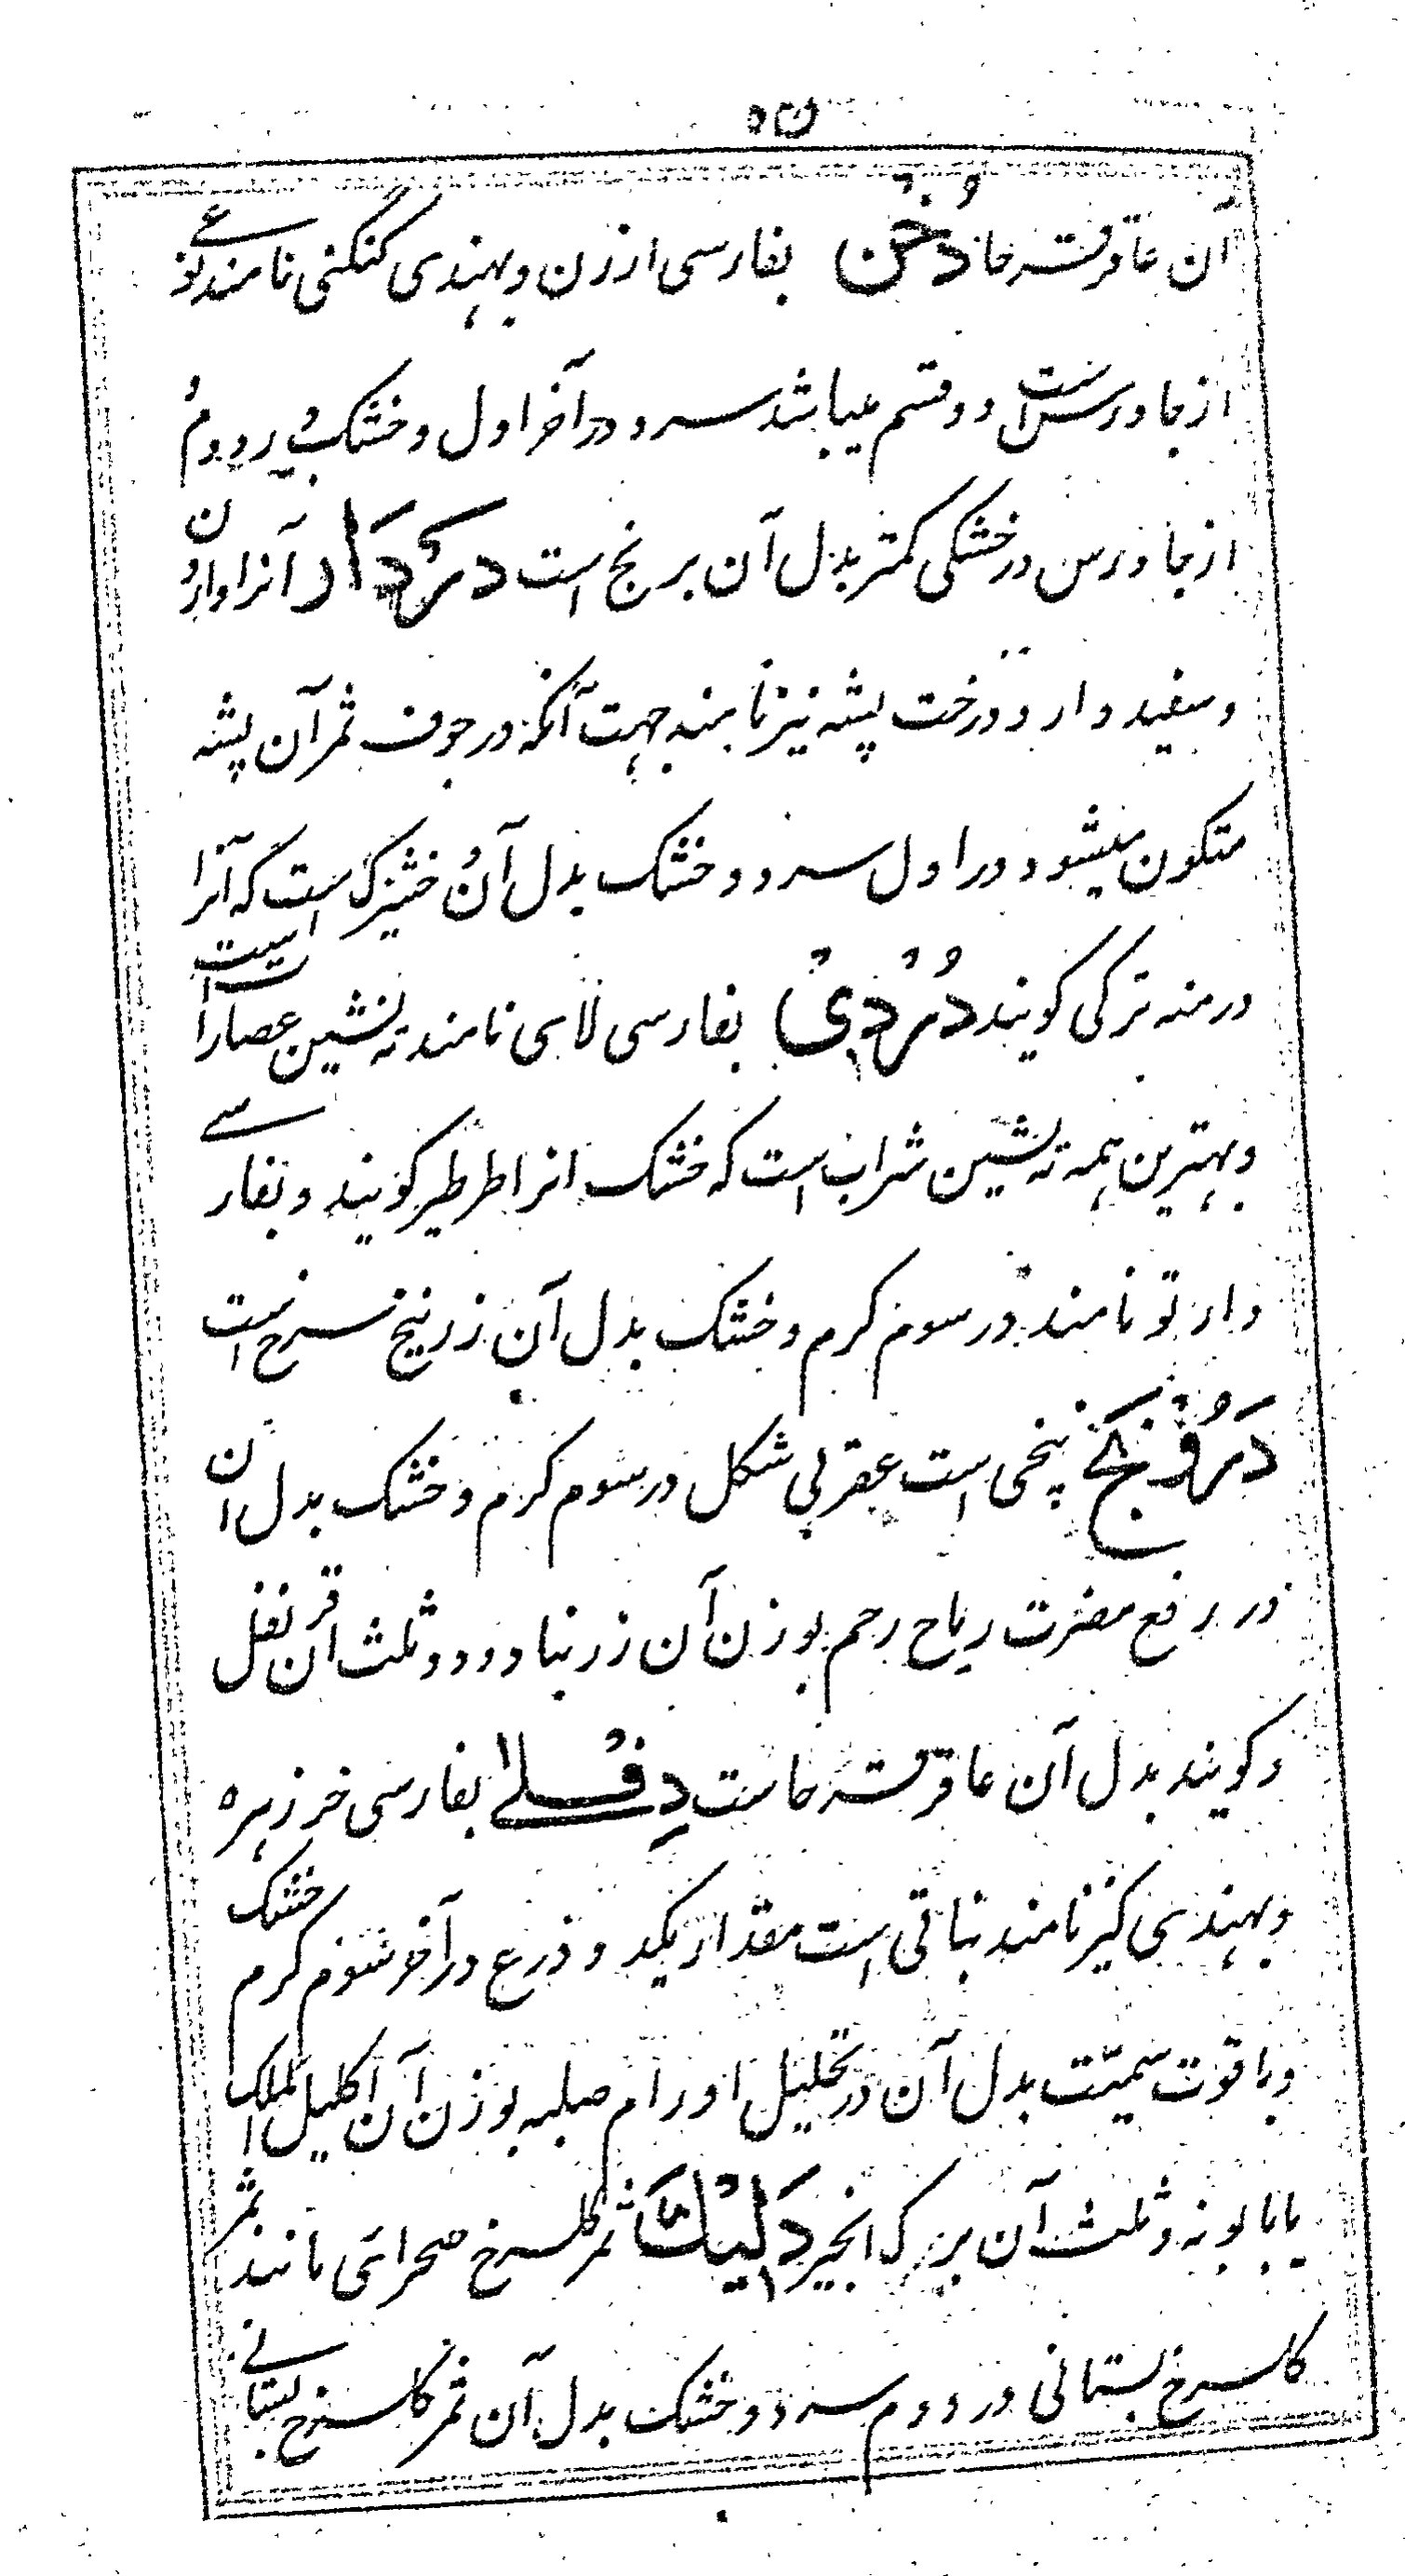 ۵۳
آن عاقرقرحا دُخْن بفارسی ارزن و بهندی کنکنی نامند نوعے
از جاورس است دو قسم میباشد سرد در آخر اول و خشک در دوم
از جاورس در خشکی کمتر بدل آن برنج است دَرْدَار آنرا وارون
و سفیددار و درخت پشه نیز نامند جهت آنکه در جوف ثمر آن پشه
متکون میشود در اول سرد و خشک بدل آن خشیزک است که آنرا
درمنه ترکی کویند دُرْدِیْ بفارسی لای نامند ته نشین عصارات است
و بهترین همه ته نشین شراب است که خشک انرا طرطیر کویند و بفارسے
دارتو نامند در سوم کرم و خشک بدل آن زرنیخ سرخ است
دَرُوْنَج بیخی است عقربی شکل در سوم کرم و خشک بدل ان
در رفع مضرت ریاح رحم بوزن آن زرنباد و دو ثلث ان قرنفل
و کویند بدل آن عاقرقرحاست دِفْلے بفارسی خرزهره
و بهندی کنیر نامند نباتی است مقدار یکد و ذرع در آخر سوم کرم خشک
و با قوت سمیّت بدل آن در تحلیل اورام صلبه بوزن آن اکلیل الملک
یا بابونه و ثلث آن برک انجیر دَلِیْک ثمر کلسرخ صحرائی مانند ثمر
کلسرخ بستانی در دوم سرد و خشک بدل آن ثمر کلسرخ بستانے